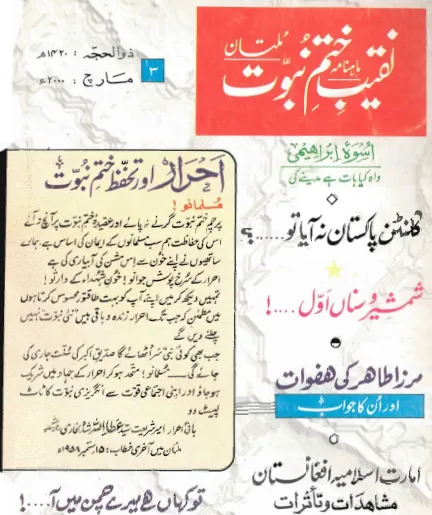 ماہنامہ
نقیب ختم نبوت
ملتان
ذوالحجہ : ۱۴۲۰ھ
مارچ : ۲۰۰۰ء
۳
اسوۂ ابراہیمی
واہ کیا بات ہے مدینے کی
کلنٹن پاکستان نہ آیا تو.....؟
شمشیر و سناں اول ....!
مرزا طاہر کی ھفوات
اور ان کا جواب
امارت اسلامیہ افغانستان
مشاھدات و تأثرات
احرار اور تحفظ ختم نبوت
مسلمانو!
پرچم ختم نبوت گرنے نہ پائے اور عقیدۂ ختم نبوت پر آنچ نہ آئے
اس کی حفاظت ہم سب مسلمانوں کے ایمان کی اساس ہے ہمارے
ساتھیوں نے اپنے خون سے اس مشن کی آبیاری کی ہے
احرار کے سرخ پوش جوانو! خون شہداء کے وارثو!
تمہیں دیکھ کر میں اپنے آپ کو بہت طاقتور محسوس کرتا ہوں
میں مطمئن کہ جب تک احرار زندہ و باقی ہیں نئی نبوت نہیں
چلنے دیں گے
جب بھی کوئی نبی سر اٹھائے گا صدیق اکبر کی سنت جاری کی
جائے گی۔ مسلمانو! متحد ہو کر احرار کے جہاد میں شریک
ہو جاؤ اور اپنی اجتماعی قوت سے انگریزی نبوت کا ٹاٹ
لپیٹ دو
بانی احرار امیر شریعت سید عطاء اللہ شاہ بخاری
ملتان میں آخری خطاب: ۱۵ ستمبر ۱۹۵۸ء
تو کہاں ھے میرے چمن میں آ....!